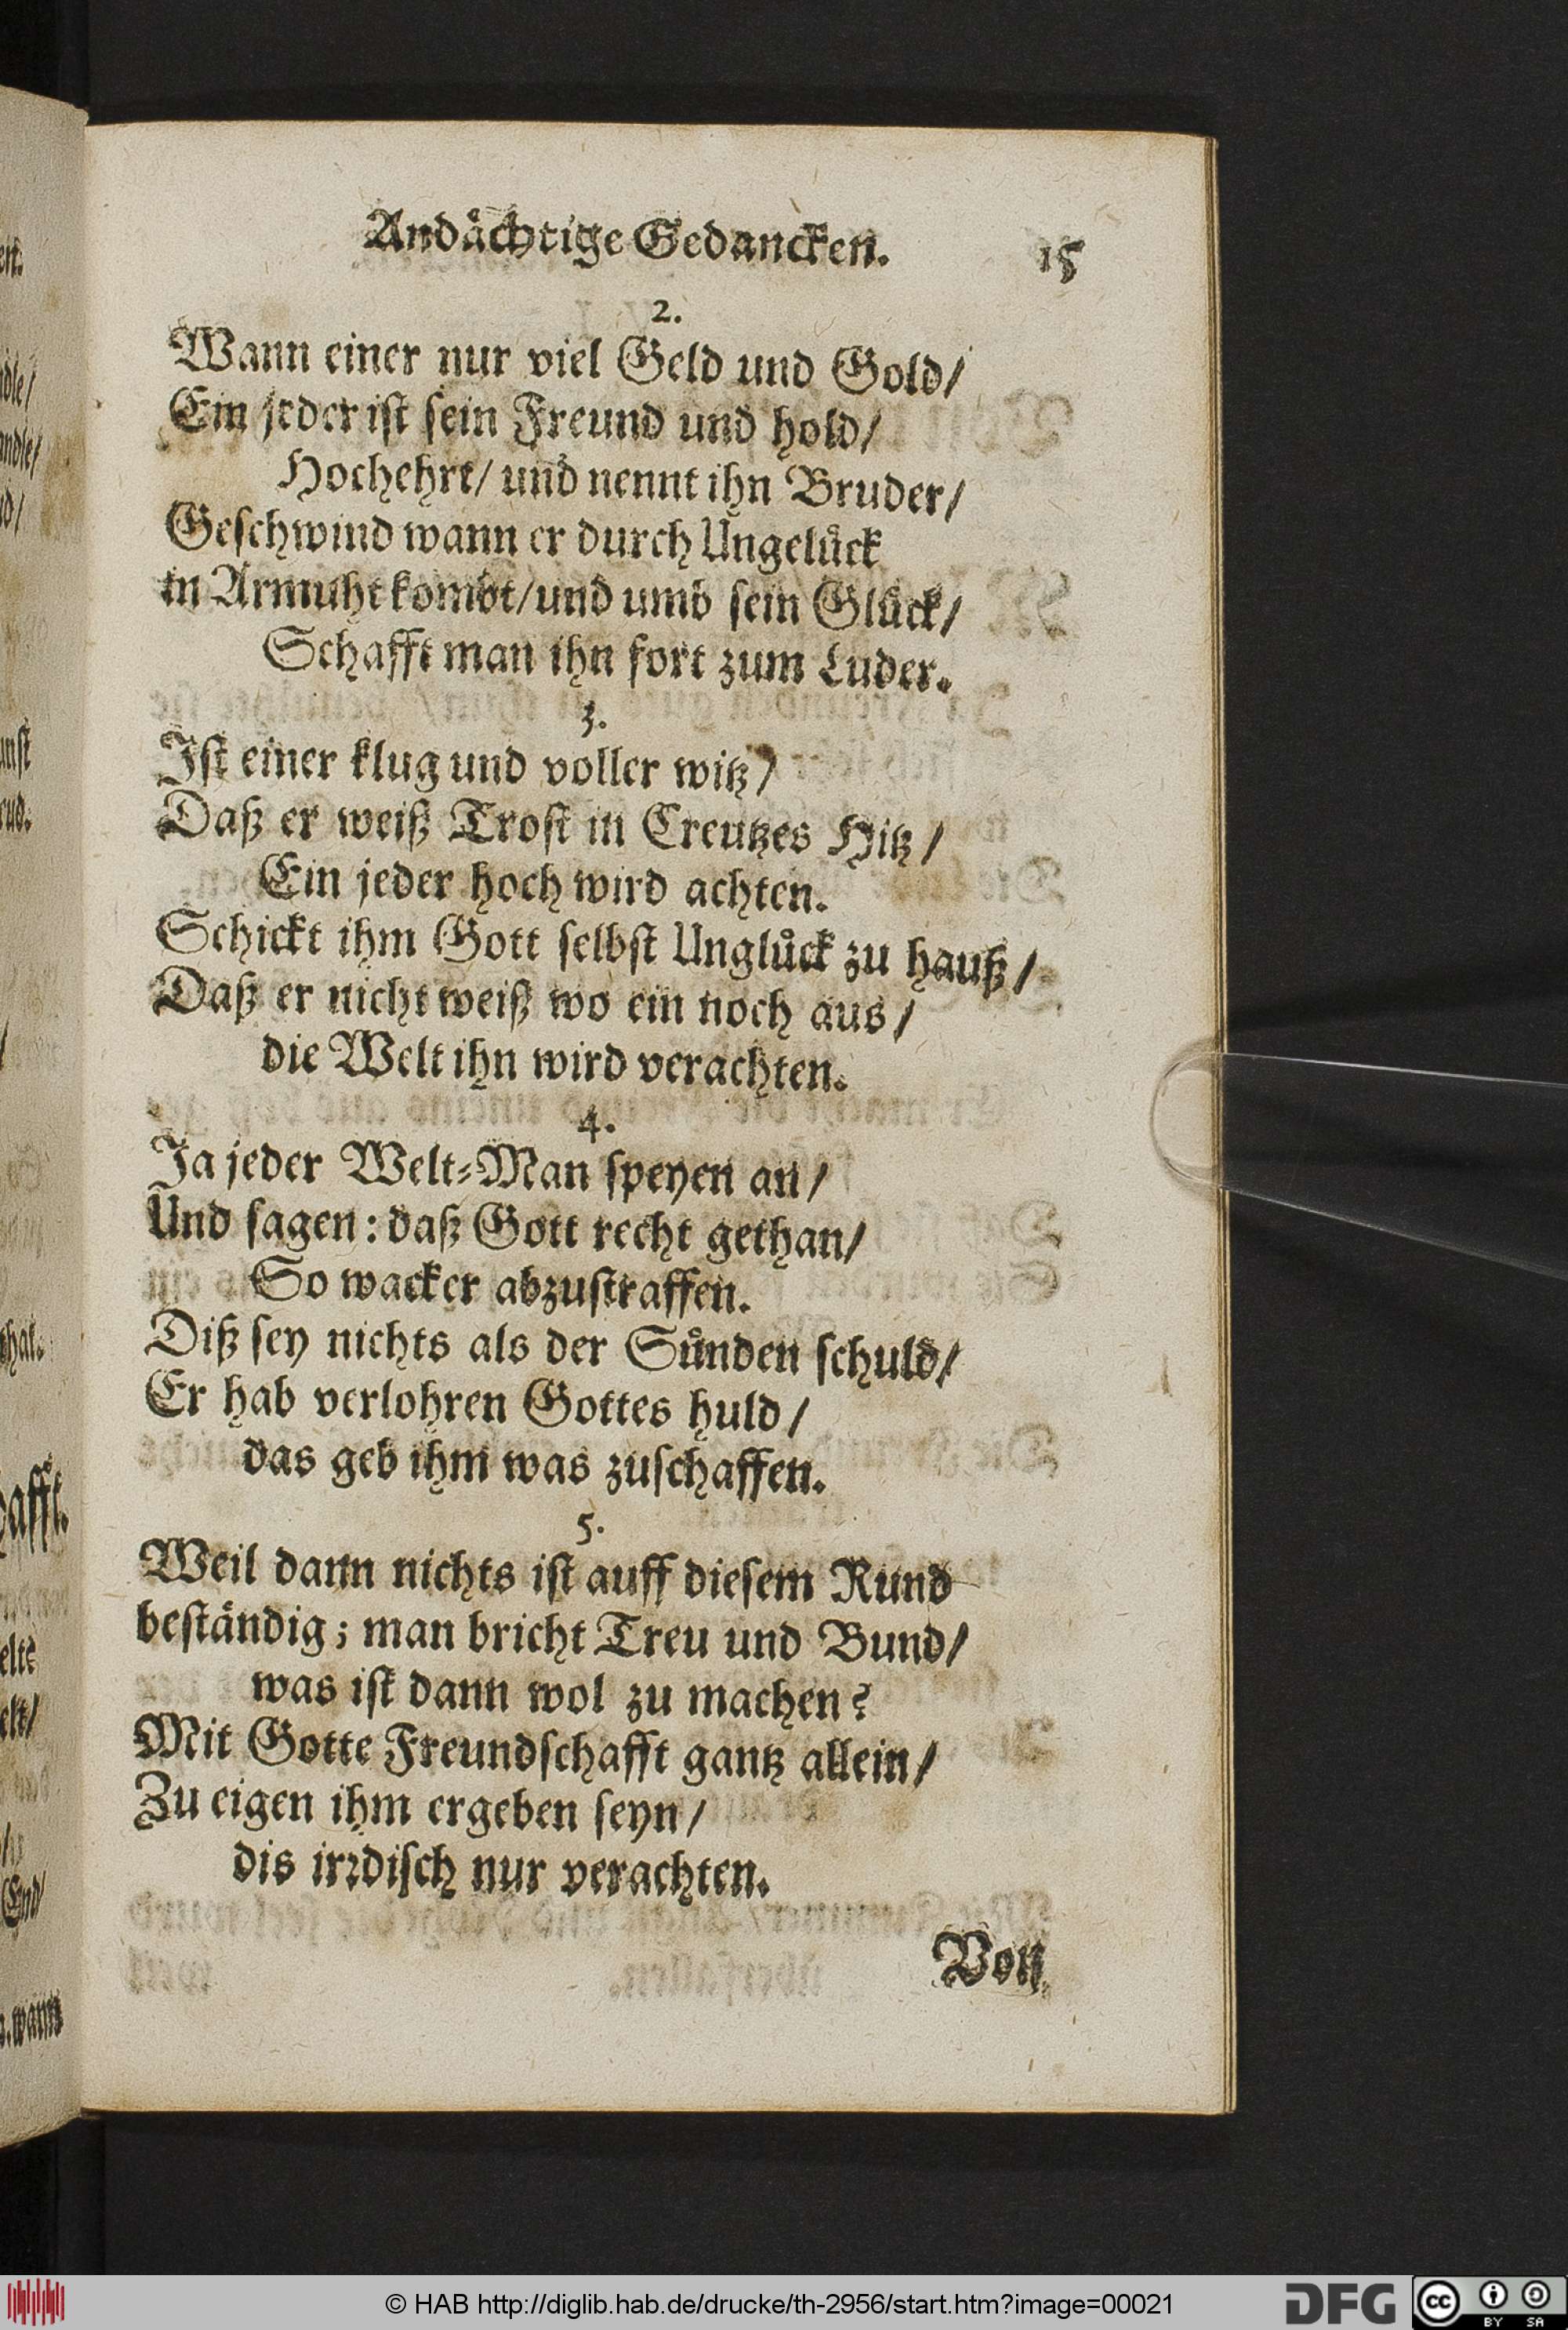 Andaͤchtige Gedancken. 15
2.
Wann einer nur viel Geld und Gold/
Ein jeder ist sein Freund und hold/
Hochehrt/ und nennt ihn Bruder/
Geschwind wann er durch Ungeluͤck
in Armuht kombt/und umb sein Gluͤck/
Schafft man ihn fort zum Luder.
3.
Ist einer klug und voller witz/
Daß er weiß Trost in Creutzes Hitz/
Ein jeder hoch wird achten.
Schickt ihm Gott selbst Ungluͤck zu hauß/
Daß er nicht weiß wo ein noch aus/
die Welt ihn wird verachten.
4.
Ja jeder Welt-Man speyen an/
Und sagen: daß Gott recht gethan/
So wacker abzustraffen.
Diß sey nichts als der Suͤnden schuld/
Er hab verlohren Gottes huld/
das geb ihm was zuschaffen.
5.
Weil dann nichts ist auff diesem Rund
beständig; man bricht Treu und Bund/
was ist dann wol zu machen?
Mit Gotte Freundschafft gantz allein/
Zu eigen ihm ergeben seyn/
dis irꝛdisch nur verachten.
Von
© HAB http://diglib.hab.de/drucke/th-2956/start.htm?image=00021
DFG
cc BY SA